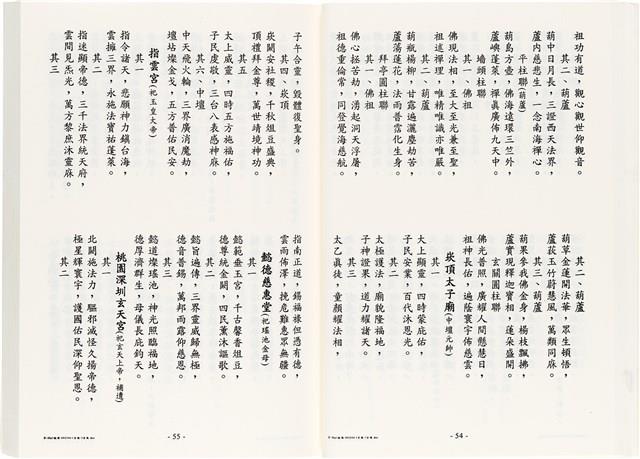 祖功有道，觀心觀世仰觀音。
其二、葫蘆
葫中日月長，三證西天法界，
蘆內慈悲生，一念南海禪心。
平柱聯(葫蘆)
葫島方壺，佛海遠環三竺外，
蘆嶼蓬萊，禪真廣佈九天中。
墻頭柱聯
其一、佛祖
佛現法相，至大至光兼至聖，
祖述禪理，唯精唯識亦唯嚴。
其二、葫蘆
葫瓶楊柳，甘露遍灑塵劫苦，
蘆蕩蓮花，法雨普霑化生身。
拜亭圓柱聯
其一、佛祖
佛心拯苦劫，湧起洞天浮屠，
祖德重倫常，同登覺海慈航。
其二、葫蘆
葫草金蓮開法華，眾生頓悟，
蘆荻玉竹蔚慧風，萬類同麻。
其三、葫蘆
葫果參我佛金身，楊枝飄拂，
蘆實現釋迦寶相，蓮朵盛開。
玄關圓柱聯
佛光普照，廣耀人間懸慧日，
祖神長佑，遍蔭寰宇佈慈雲。
崁頂太子廟(中壇元帥)
其一
太上顯靈，四時蒙庇佑，
子民安業，百代沐恩光。
其二
太極護法，廟貌隆福地，
子神證果，道力耀諸天。
其三
太乙真徒，童顏耀法相，
- 54 -
子午合靈，毀體復聖身。
其四、崁頂
崁關安社稷，千秋俎豆盛典，
頂禮拜金尊，萬世靖境神功。
其五
太上威靈，四時五方施福佑，
子民虔敬，三台八表感神麻。
其六、中壇
中天飛火輪，三界廣消魔劫，
壇坫燦金戈，五方普佑民安。
指雲宮(祀玉皇大帝)
其一
指令諸天，悲願神力鎮台海，
雲擁三界，永施法寶祐蓬萊。
其二
指迷顯帝德，三千法界統天府，
雲開見炁光，萬方黎庶沐靈麻。
其三
指南正道，錫福祿但憑有德，
雲雨佈澤，挽危難惠眾無疆。
懿德慈惠堂(祀瑤池金母)
其一
懿範垂玉宮，千古馨香俎豆，
德尊統金闕，四民薰沐謳歌。
其二
懿旨遍傳，三界靈威歸無極，
德音普錫，萬邦雨露仰慈恩。
其三
懿道燦瑤池，神光照臨福地，
德厚濟群生，母儀長庇鈞天。
桃園深圳玄天宮(祀玄天上帝，補遺)
其一
北闕施法力，驅邪滅怪久揚帝德，
極星輝寰宇，護國佑民深仰聖恩。
其二
- 55 -